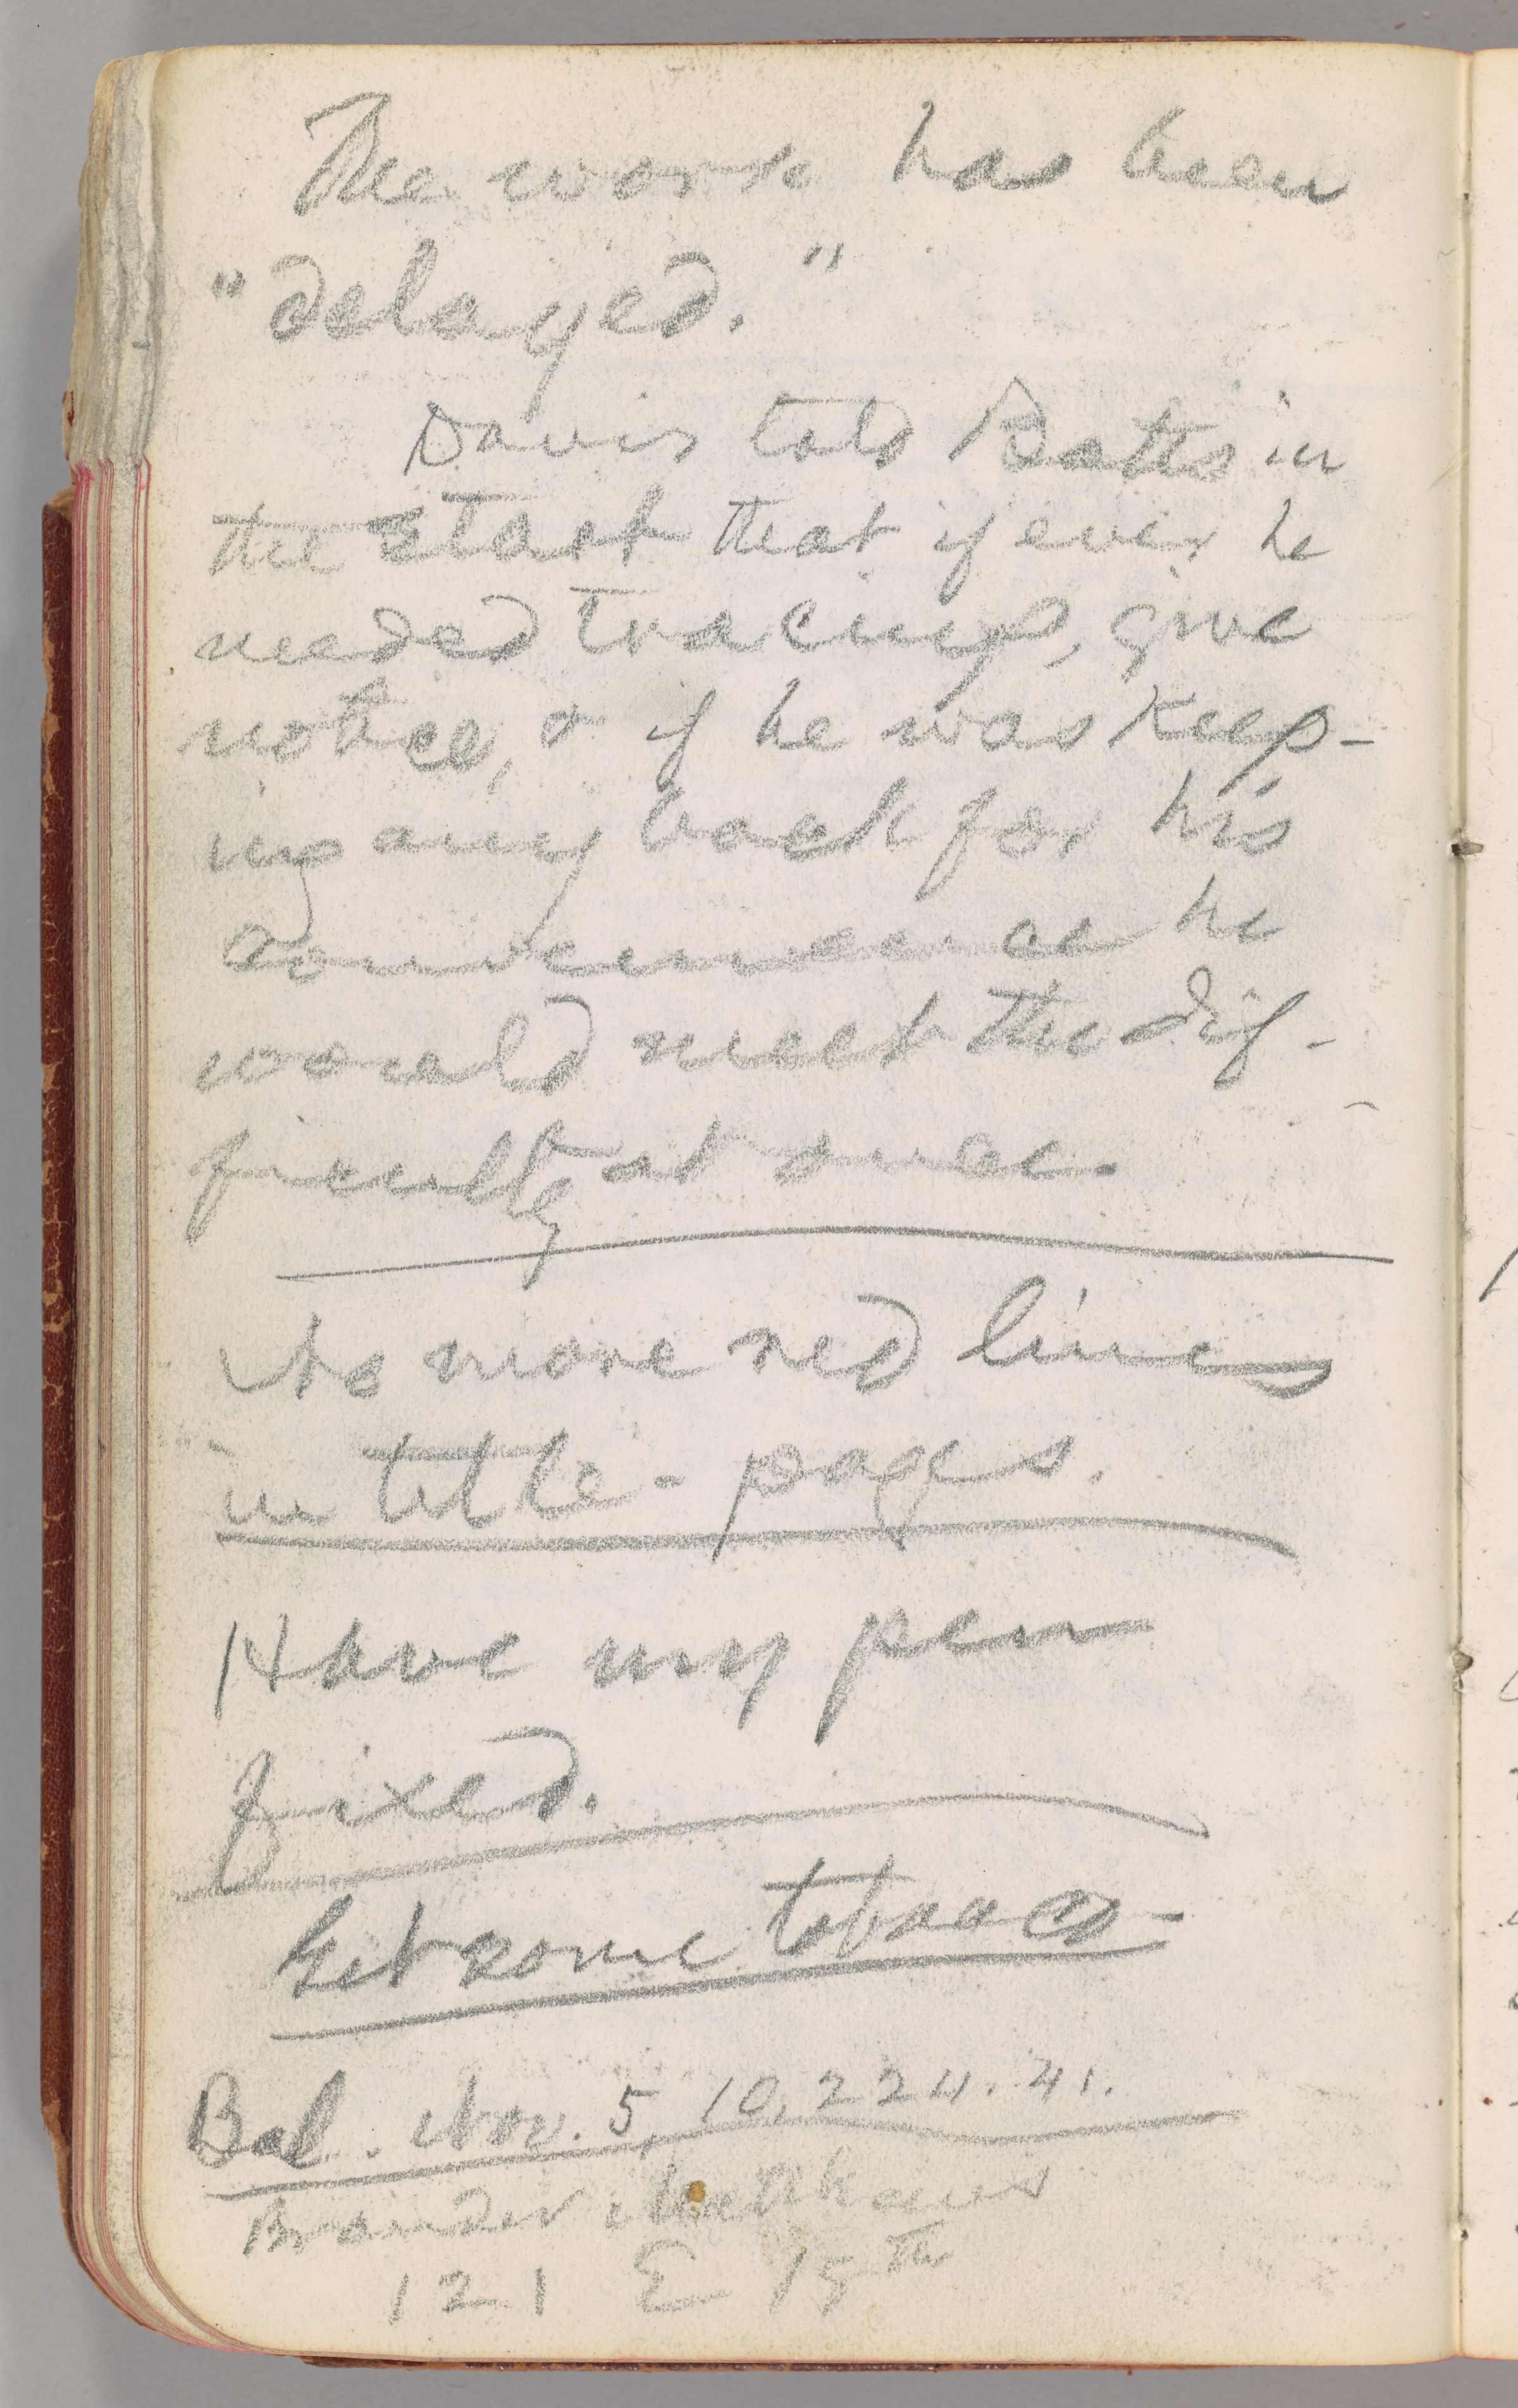 The work has been
"delayed."
Davis told Botts in
the start that if ever he
needed tracings, give
notice, & if he was keep-
ing any back for his
convenience he
would meet the dif-
ficulty at once.
No more red lines
in title-pages.
Have my pen
fixed.
Get some tobacco—
Bal. Nov. 5, 10,224.41.
Brander Matthews
121 E 18th